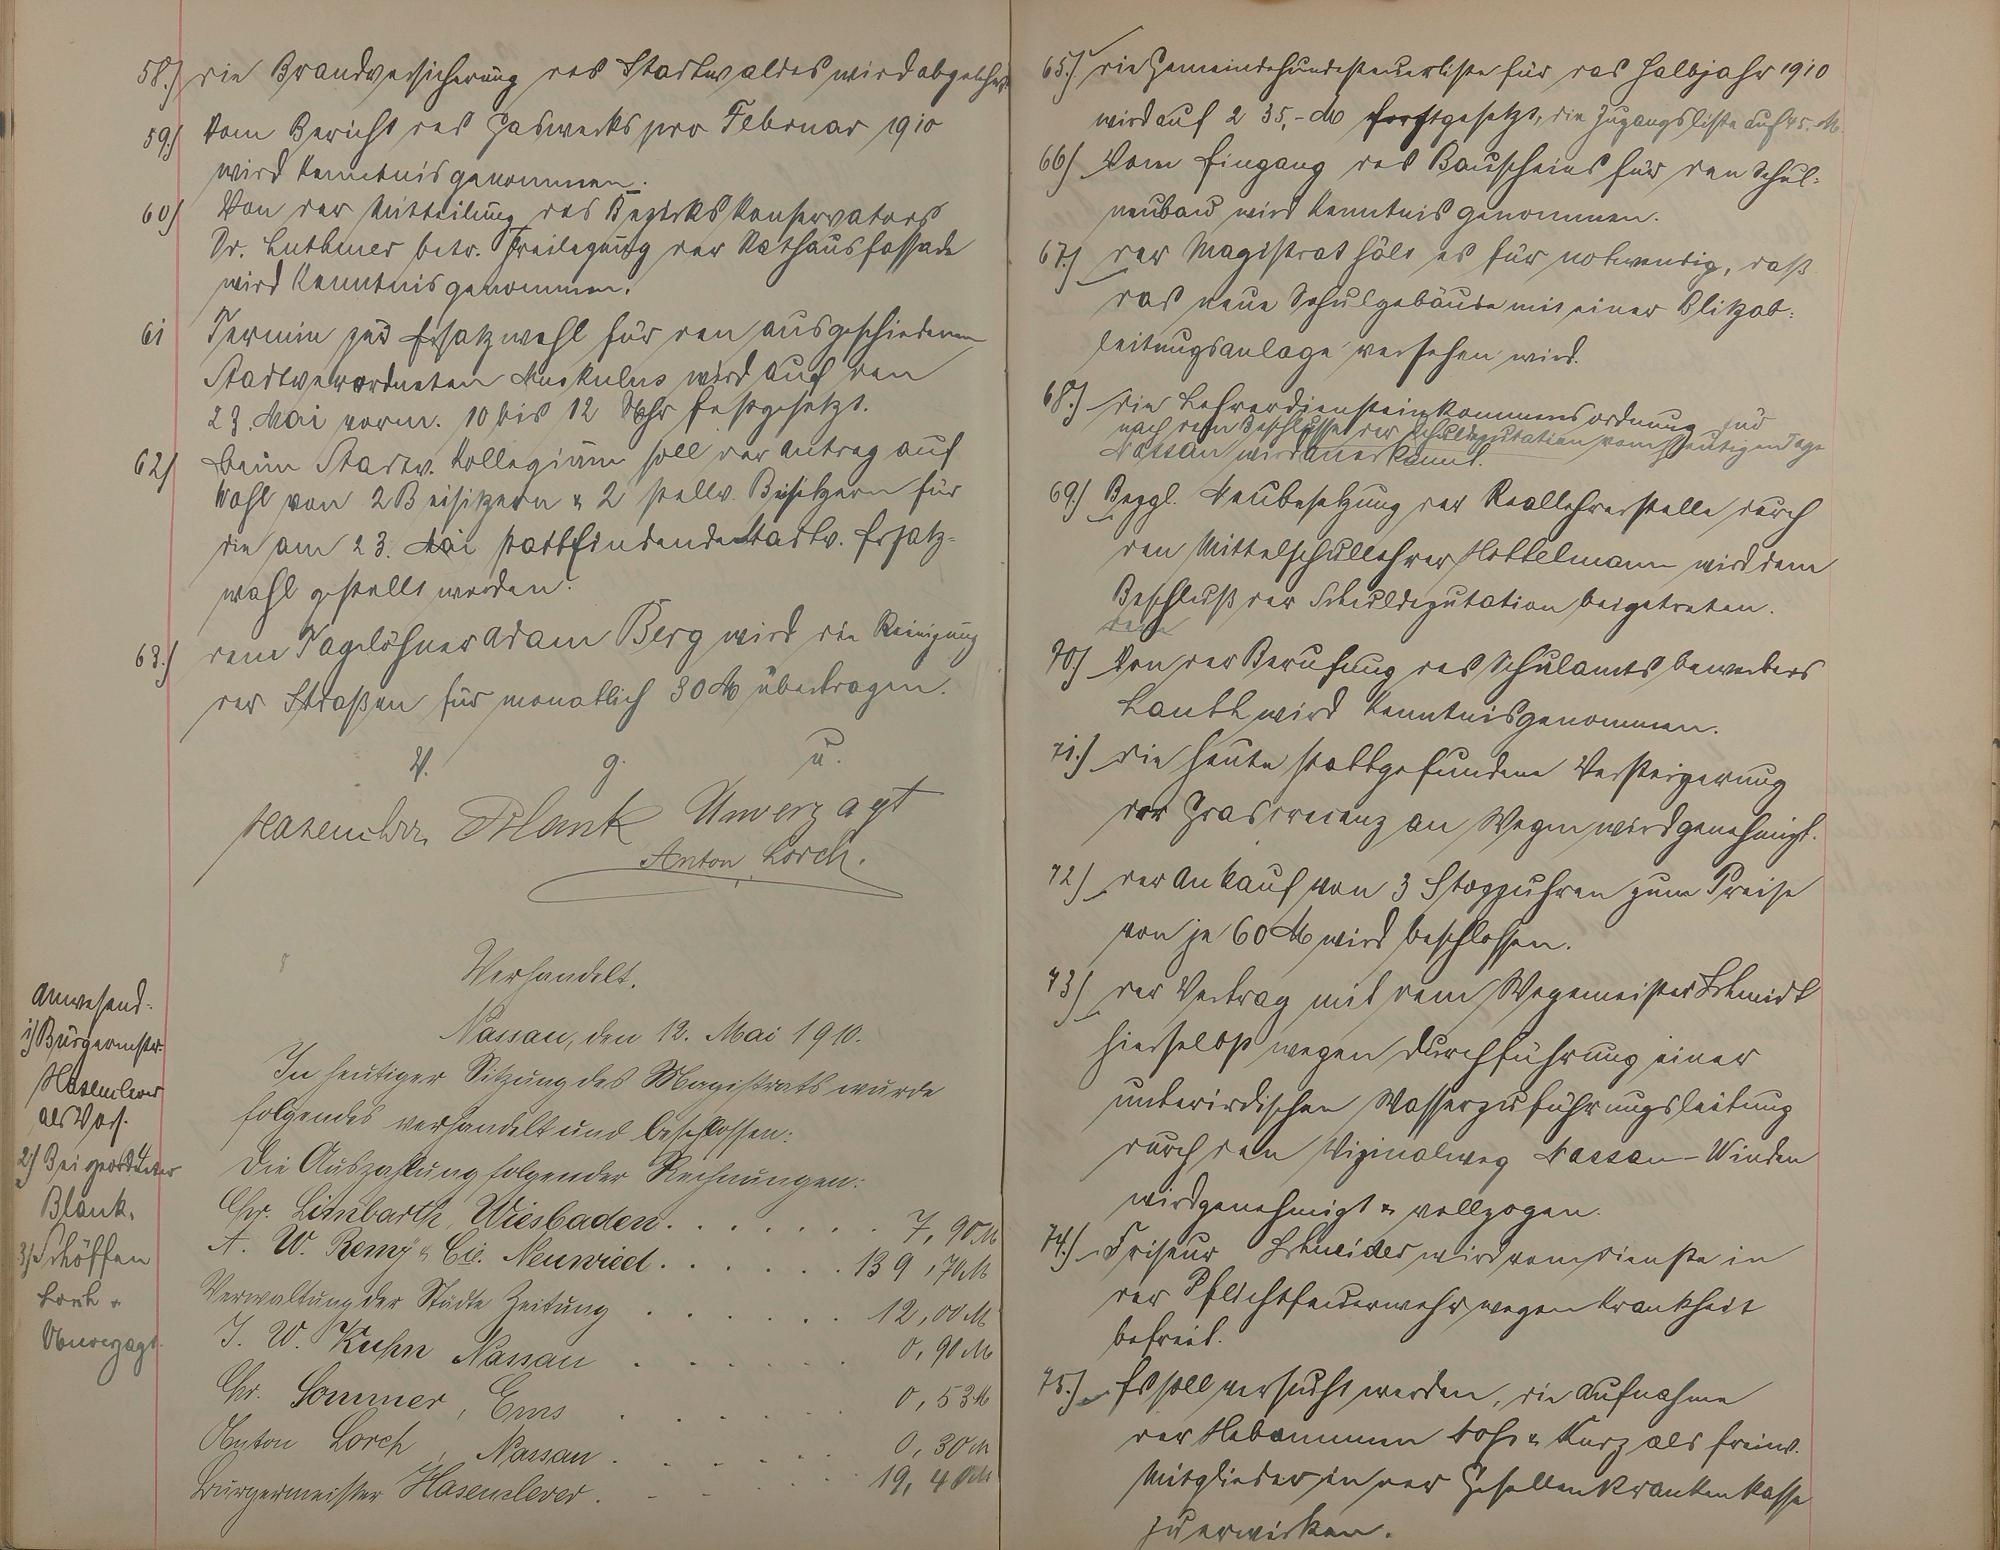 58.) die Brandversicherung des Stadtwaldes wird abgelehnt.
59.) Vom Bericht des Gaswerks pro Februar 1910
wird Kenntnis genommen.
60) Von der Mitteilung des Bezirks Konservators
Dr. Luthmer betr. Freilegung der Rathausfassade
wird Kenntnis genommen.
61 Termin zur Ersatzwahl für den ausgeschiedenen
Stadtverordneten Muskulus wird auf den
23. Mai vorm. 10 bis 12 Uhr festgesetzt.
62) beim Stadtv. Kollegium soll der Antrag auf
Wahl von 2 Beisitzern u 2 stellv. Beisitzern für
die am 23. Mai stattfindende Stadtv. Ersatz-
wahl gestellt werden.
63.) dem Tagelöhner Adam Berg wird die Reinigung
der Straßen für monatlich 30 M übertragen.
V. g. u.
Hasenclever Blank Unverzagt
Anton Lorch.
Verhandelt.
Nassau, den 12. Mai 1910.
Anwesend:
1) Bürgermstr.
Hasenclever
als Vors.
2) Beigeordneter
Blank.
3) Schöffen
Lorch u
Unverzagt.
In heutiger Sitzung des Magistrats wurde
folgendes verhandelt und beschlossen:
Die Auszahlung folgender Rechnungen:
Chr. Limbarth, Wiesbaden . . . . . . . 7,90 M
A. W. Remy u Cie. Neuwied . . . . . . 139,70 M
Verwaltung der Städte Zeitung . . . . . . 12,00 M
J. W. Kuhn Nassau . . . . . . 0,90 M
Chr. Sommer, Ems . . . . . . 0,53 M
Anton Lorch, Nassau . . . . . . 0,30 M
Bürgermeister Hasenclever . . . . . 19,40 M
65.) die Gemeindehundesteuerliste für das Halbjahr 1910
wird auf 235,- M festgesetzt, die Zugangsliste auf 45.- M.
66) Vom Eingang des Bauscheins für den Schul-
neubau wird Kenntnis genommen.
67.) der Magistrat hält es für notwendig, daß
das neue Schulgebäude mit einer Blitzab-
leitungsanlage versehen wird.
68.) die Lehrerdiensteinkommensordnung
nach dem Beschlusse der Schuldeputation vom heutigen Tage
Nassau wird anerkannt.
69.) Bezgl. Neubesetzung der Reallehrerstelle durch
den Mittelschullehrer Hottelmann wird dem
Beschluß der Schuldeputation beigetreten.
70) Von der Berufung des Schulamtsbewerbers
Lauth wird Kenntnis genommen.
71.) die heute stattgefundene Versteigerung
der Grascrescenz an Wegen wird genehmigt.
72) der Ankauf von 3 Stoppuhren zum Preise
von je 60 M wird beschlossen.
73) der Vertrag mit dem Wegemeister Schmidt
hierselbst wegen Durchführung einer
unterirdischen Wasserzuführungsleitung
durch den Vizinalweg Nassau-Winden
wird genehmigt u vollzogen.
74.) Friseur Schneider wird vom Dienste in
der Pflichtfeuerwehr wegen Krankheit
befreit.
75.) Es soll versucht werden, die Aufnahme
der Hebammen u Kurz als freiw.
Mitglieder in der Gesellenkrankenkasse
zu erwirken.